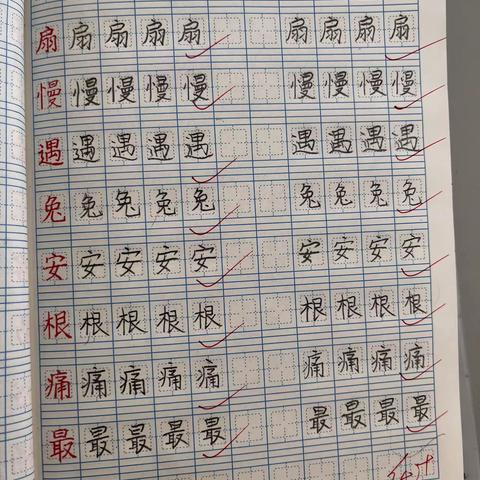 扇扇扇扇扇 扇扇扇扇
慢慢慢慢慢 慢慢慢慢
遇遇遇遇遇 遇遇遇遇
兔兔兔兔兔 兔兔兔兔
安安安安安 安安安安
根根根根根 根根根根
痛痛痛痛痛 痛痛痛痛
最最最最最 最最最最